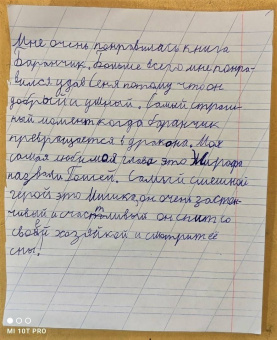 Мне очень понравилась книга
Баранчик. Больше всего мне понра-
вился удав Сеня потому что он
добрый и умный. Самый страш-
ный момент когда баранчик
превращается в дракона. Моя
самая любимая глава это Жирафа
назвали Гошей. Самый смешной
герой это Мишка, он очень застен-
чивый и счастливый он спит со
своей хозяйкой и смотрит её
сны.
MI 10T PRO